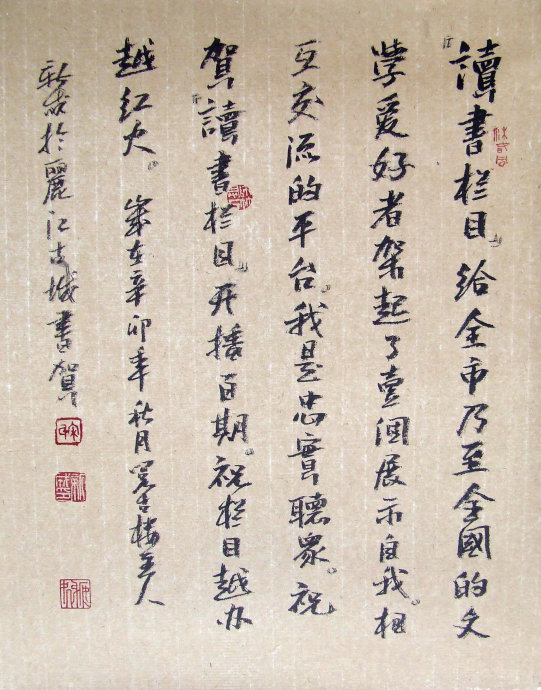 『讀書栏目』给全市乃至全國的文
學爱好者架起了壹個展示自我、相
互交流的平台。我是忠實聽衆。祝
賀『讀書栏目』开播百期。祝栏目越办
越红火。 歲在辛卯年秋月 古楼主人
於麗江古城書賀